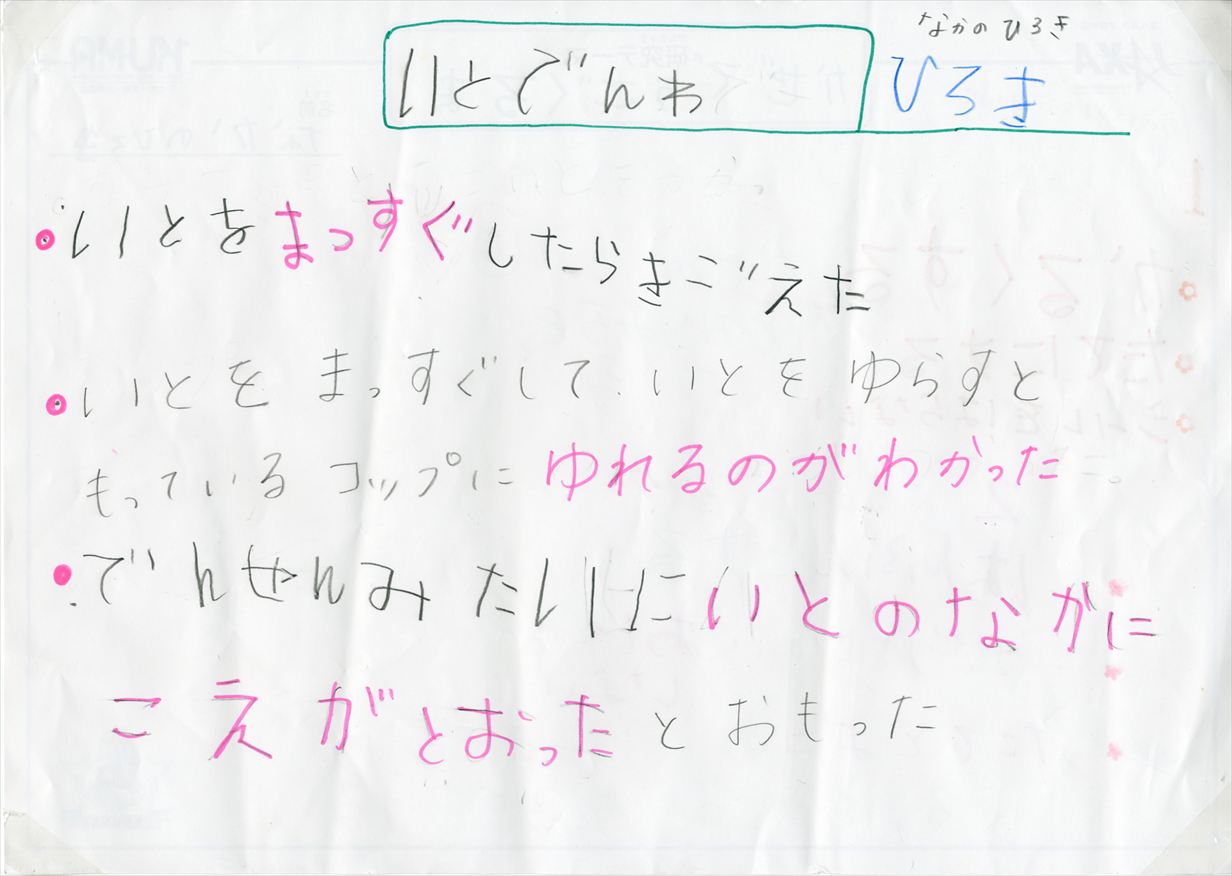 なかの ひろき
いとでんわ ひろき
いとをまっすぐしたらきごえた
いとを まっすぐして いとを ゆらすと
もっている コップに ゆれるのがわかった
でんせんみたいにいとのなかに
こえがとおったとおもった